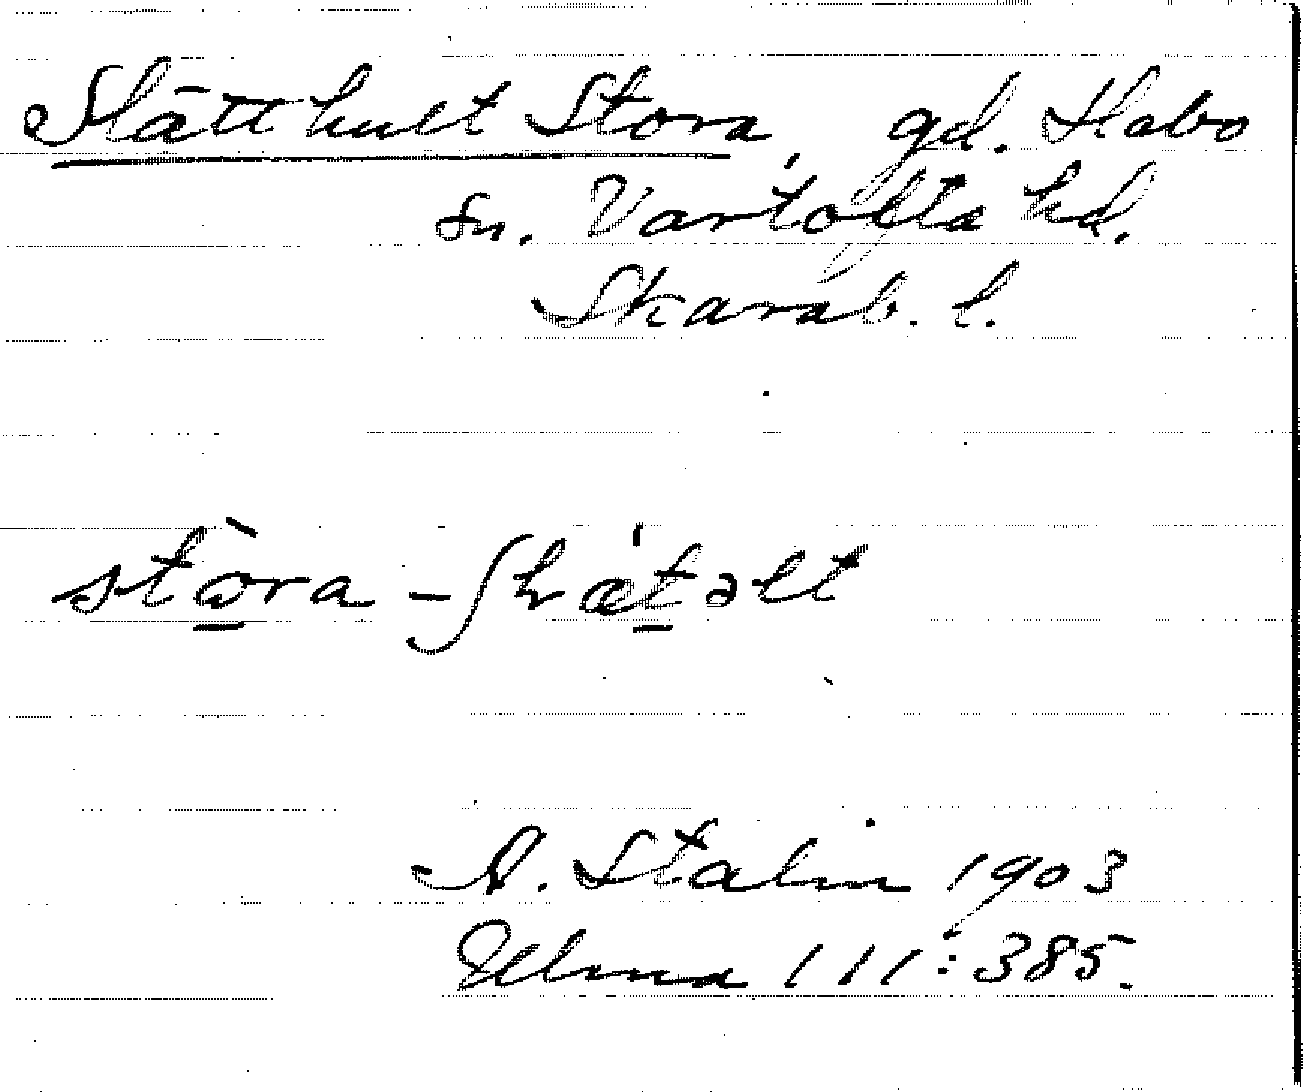 Slätthult Stora, gd. Habo
sn. Vartofta hd.
Skarab. l.
stὼra - ʃlætəlt
A. Stalin 1903
Ulma 111:385.